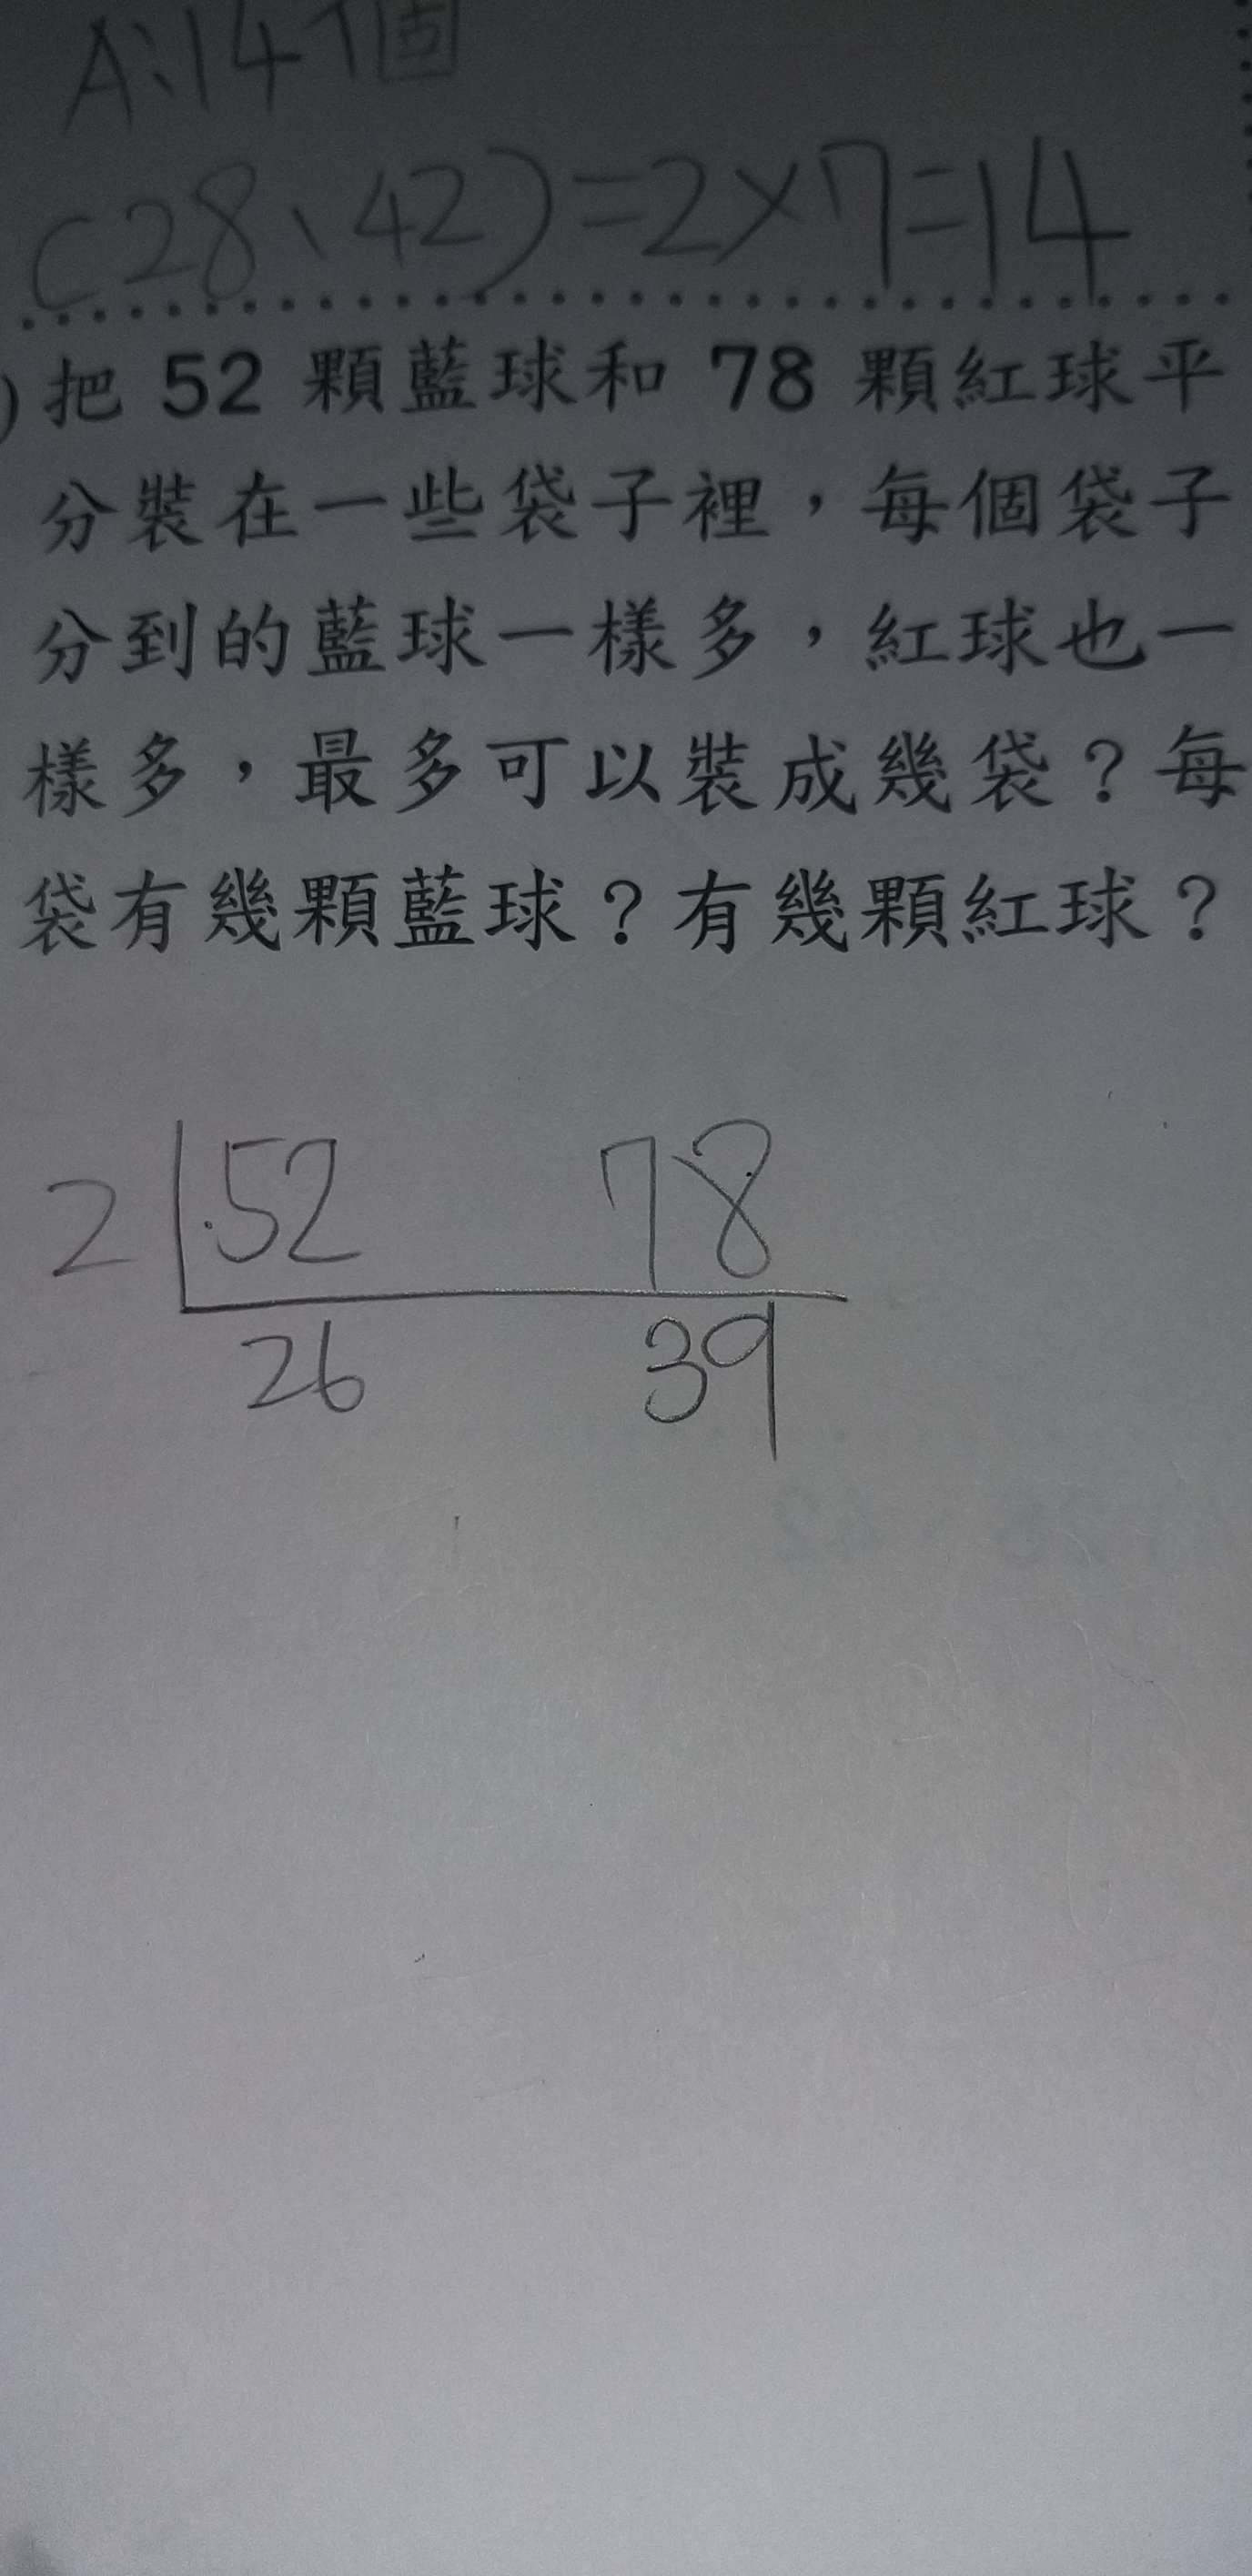 A:14個
(28、42)=2×7=14
)把 52 顆藍球和 78 顆紅球平
分裝在一些袋子裡，每個袋子
分到的藍球一樣多，紅球也一
樣多，最多可以裝成幾袋？每
袋有幾顆藍球？有幾顆紅球？
2 52 78
26 39